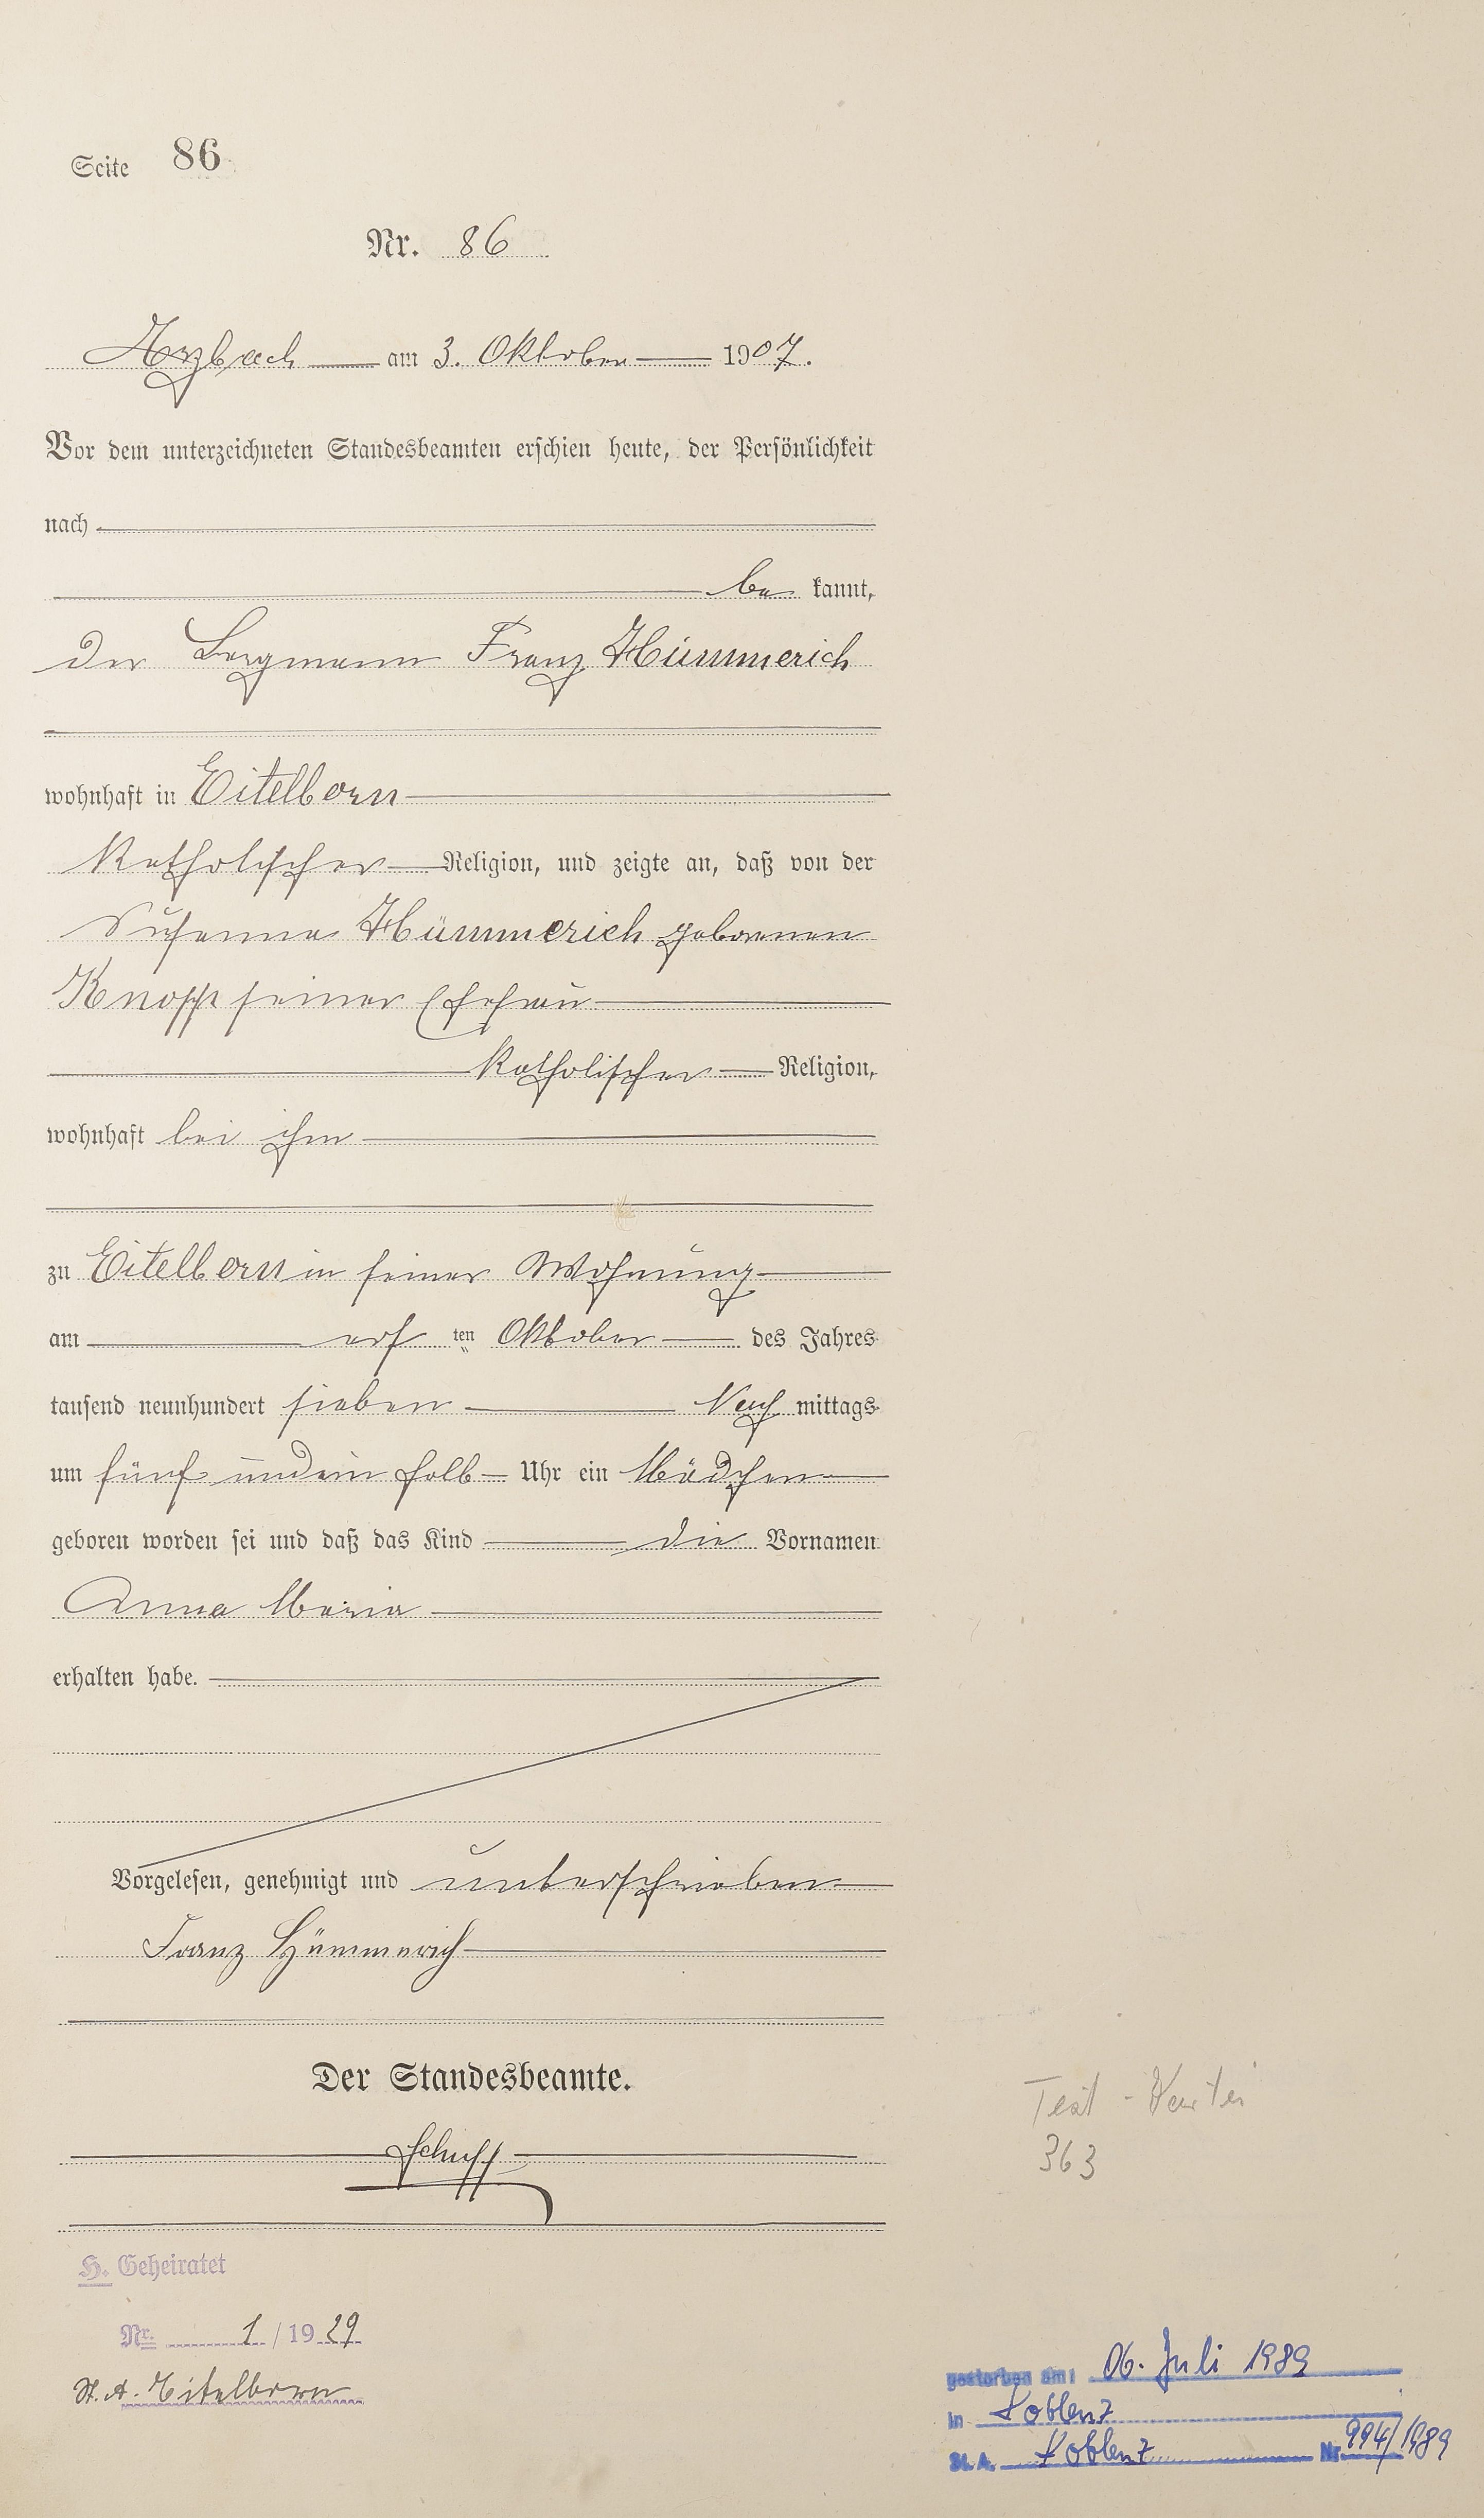 Seite 86
Nr. 86
Arzbach am 3. Oktober 1907.
Vor dem unterzeichneten Standesbeamten erschien heute, der Persönlichkeit
nach
be kannt,
der Bergmann Franz Hümmerich
wohnhaft in Eitelborn
katholischer Religion, und zeigte an, daß von der
Susanna Hümmerich geborenen
Knopp seiner Ehefrau
katholischer Religion,
wohnhaft bei ihm
zu Eitelborn in seiner Wohnung
am ersten Oktober des Jahres
tausend neunhundert sieben Nach mittags
um fünf und ein halb Uhr ein Mädchen
geboren worden sei und daß das Kind die Vornamen
Anna Maria
erhalten habe.
Vorgelesen, genehmigt und unterschrieben
Franz Hümmerich
Der Standesbeamte.
Schupp
H. Geheiratet
Nr. 1/1929
St. A. Eitelborn
Test-Kartei
363
gestorben am: 06. Juli 1989
in Koblenz
St. A. Koblenz Nr. 994/1989